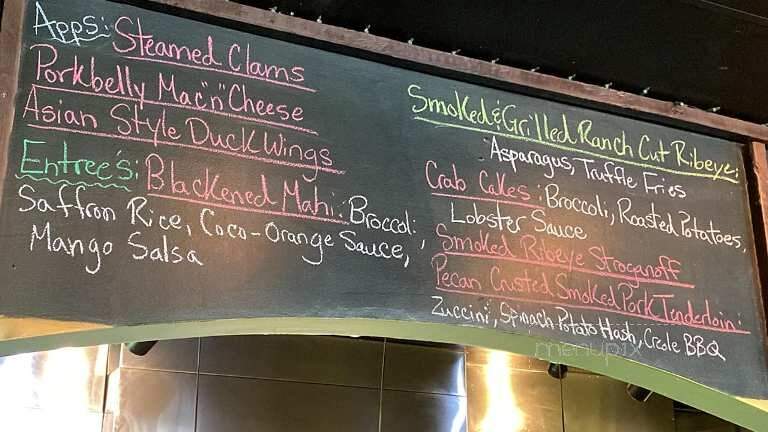 Apps: Steamed Clams
Porkbelly Mac"n"Cheese
Asian Style Duck Wings
Entree's: Blackened Mahi: Broccoli,
Saffron Rice, Coco-Orange Sauce,
Mango Salsa
Smoked & Grilled Ranch Cut Ribeye:
Asparagus, Truffle Fries
Crab Cakes: Broccoli, Roasted Potatoes,
Lobster Sauce
Smoked Ribeye Stroganoff
Pecan Crusted Smoked Pork Tenderloin:
Zuccini, Spinach Potato Hash, Creole BBQ
menupix